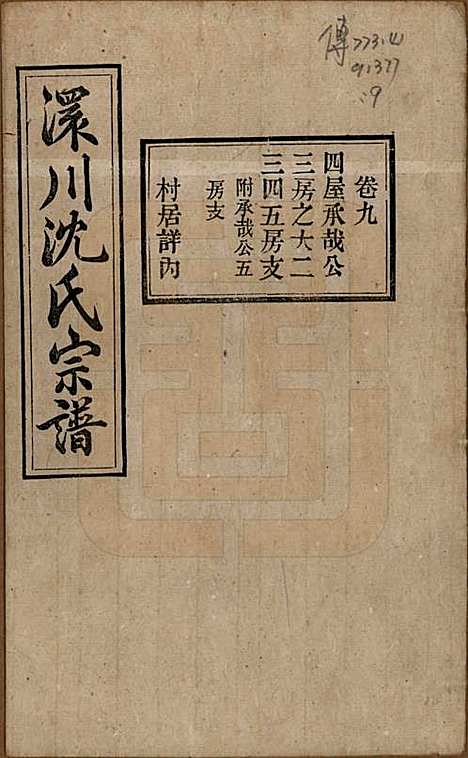 傳773.4
91377
:9
卷九
四屋承哉公
三房之大二
三四五房支
附承哉公五
房支
村居詳內
澴川沈氏宗譜